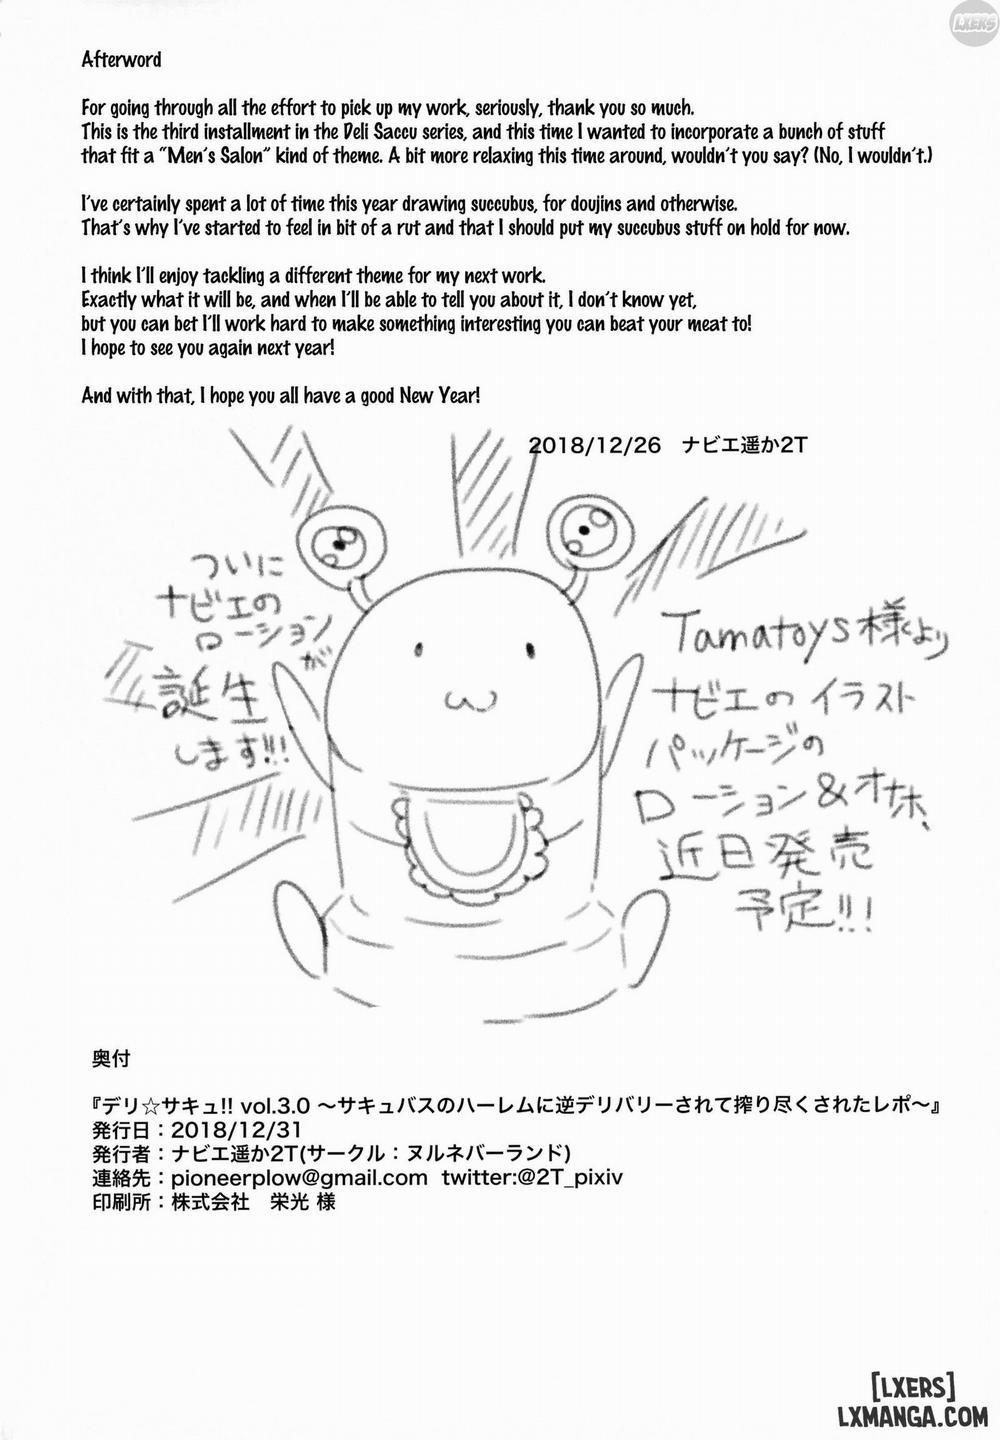 LXERS
Afterword
For going through all the effort to pick up my work, seriously, thank you so much.
This is the third installment in the Deli Saccu series, and this time I wanted to incorporate a bunch of stuff
that fit a "Men's Salon" kind of theme. A bit more relaxing this time around, wouldn't you say? (No, I wouldn't.)
I've certainly spent a lot of time this year drawing succubus, for doujins and otherwise.
That's why I've started to feel in bit of a rut and that I should put my succubus stuff on hold for now.
I think I'll enjoy tackling a different theme for my next work.
Exactly what it will be, and when I'll be able to tell you about it, I don't know yet,
but you can bet I'll work hard to make something interesting you can beat your meat to!
I hope to see you again next year!
And with that, I hope you all have a good New Year!
2018/12/26 ナビエ遥か2T
ついに
ナビエの
ローション
が
誕生
します!!!
Tamatoys様より
ナビエのイラスト
パッケージの
ローション&オナホ、
近日発売
予定!!!
奥付
『デリ☆サキュ!! vol.3.0 〜サキュバスのハーレムに逆デリバリーされて搾り尽くされたレポ〜』
発行日：2018/12/31
発行者：ナビエ遥か2T(サークル：ヌルネバーランド)
連絡先：pioneerplow@gmail.com twitter:@2T_pixiv
印刷所：株式会社 栄光 様
[LXERS]
LXMANGA.COM